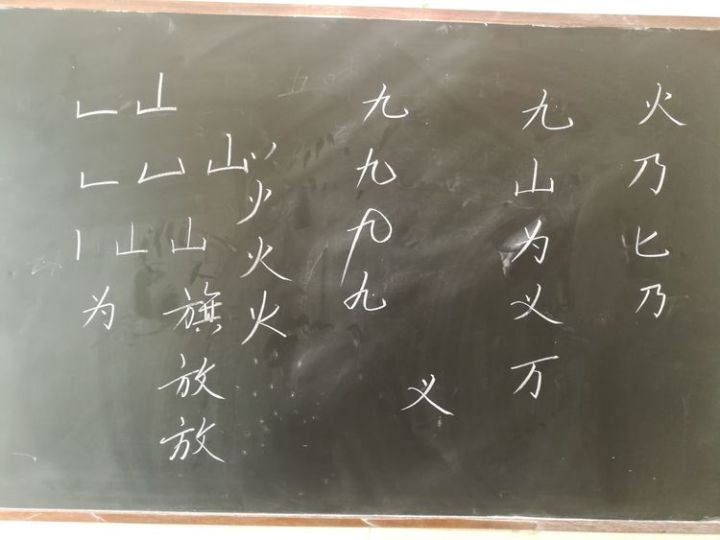 山 九 九 火
山 九 山 乃
山 火 九 为 匕
为 旗 火 九 义 乃
放 义 万
放